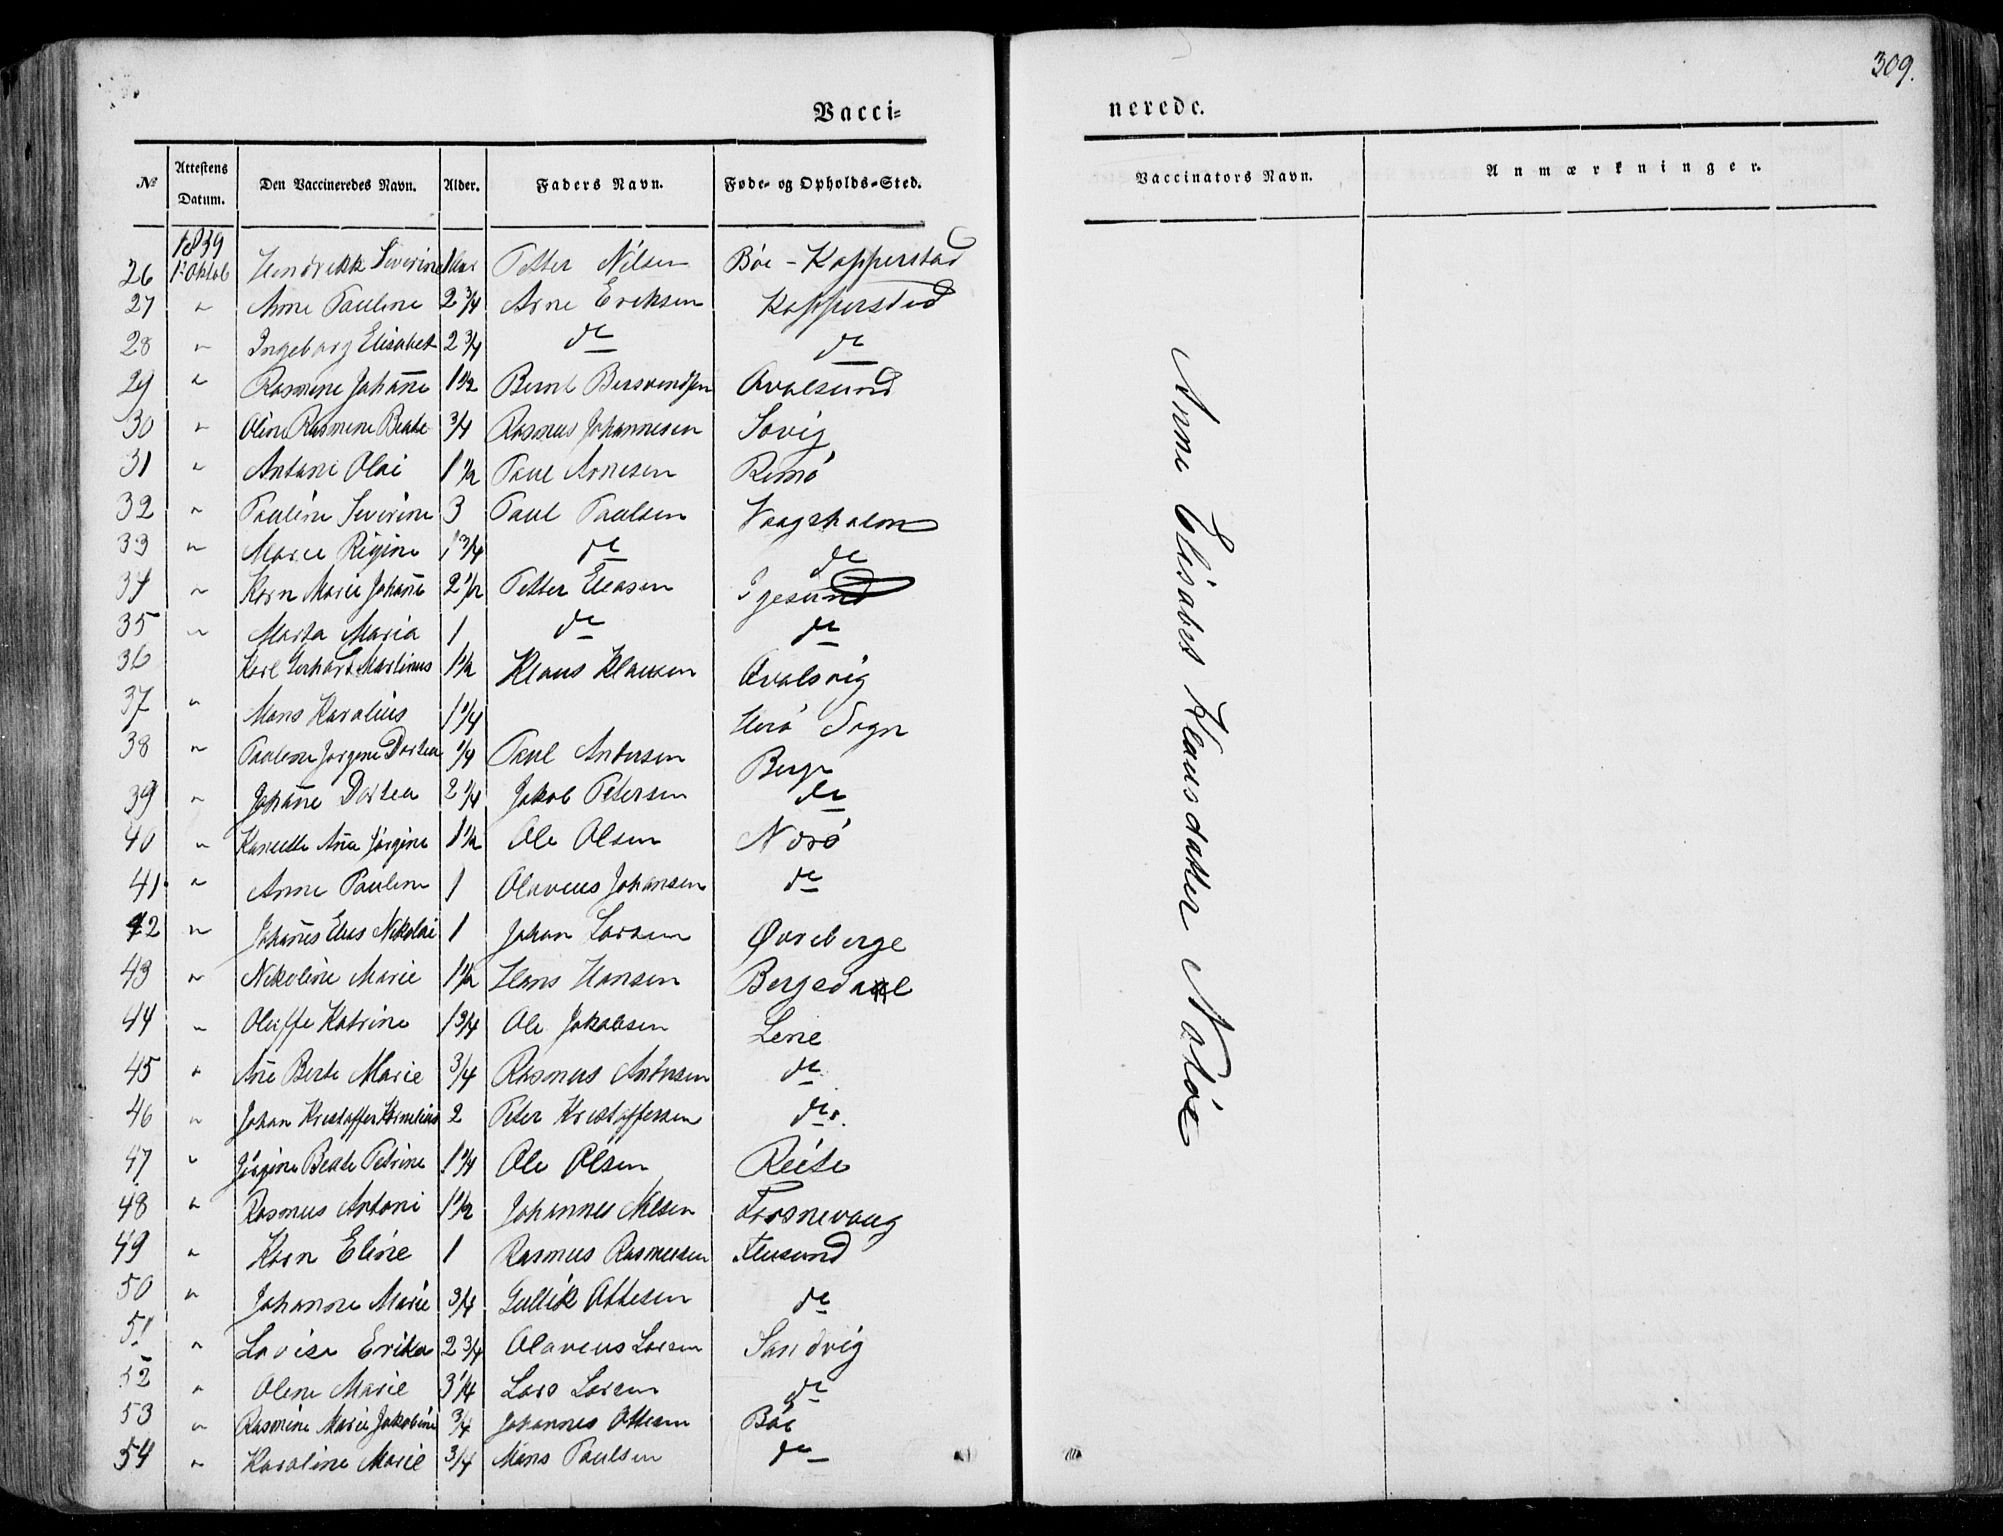 309.
Vacci=
nerede.
No Attestens Datum. Den Vaccineredes Navn. Alder. Faders Navn. Føde- og Opholds-Sted.
Vaccinators Navn. Anmærkninger.
1839
26 1ste Oktob Hendrekk Severine 1 Aar Petter Nilsen Böe - Kopperstad
27 " Anne Pauline 2 3/4 Arne Eriksen Kopperstad
28 " Ingeborg Elisabet 2 3/4 do do
29 " Rasmine Johañe 1 1/2 Bernt Bersvendsen Qvalsund
30 " Oline Rasmine Beate 3/4 Rasmus Johannesen Savig
31 " Antoni Olai 1 1/2 Paul Arnesen Remö
32 " Pauline Severine 3 Paul Paulsen Vaagsholm
33 " Marie Rigine 1 3/4 do do
34 " Karn Marie Johañe 2 1/2 Petter Eleasen Igesund
35 " Marta Maria 1 do do
36 Karl Gerhart Martinus 1 1/2 Klaus Klausen Qvalsvig
37 " Mons Karolius 1 1/4 Herö Sogn
38 " Paulene Jørgene Dortea 1/4 Paul Andersen Berge
39 " Johañe Dortea 2 1/4 Jakob Petersen do
40 " Añe Jørgine 1 1/2 Ole Olsen Nörö
41 " Anne Pauline 1 Olaveus Johansen do
42 " Johañes Elias Nikolai 1 Johan Larsen Øvreberge
43 " Nikoline Marie 1 1/2 Hans Hansen Bergsdal
44 " Oluffe Katrine 1 3/4 Ole Jakobsen Leine
45 " Añe Berte Marie 3/4 Rasmus Andersen do
46 " Johan Kristoffer Kornelius 2 Peter Kristoffersen do.
47 " Jörgine Beate Petrine 1 1/4 Ole Olsen Reite
48 " Rasmus Antoni 1 1/2 Johannes Nilsen Frosnevaag
49 " Karn Eline 1 Rasmus Rasmussen Flusund
50 " Johanne Marie 3/4 Gullik Ottesen do
51 " Lovise Erika 2 3/4 Olaveus Larsen Sandvig
52 " Olene Marie 3 1/4 Lars Larsen do
53 " Rasmine Marie Jakobine 3/4 Johannes Ottesen Böe
54 " Karoline Marie 3/4 Mons Paulsen do
Anne Elisabet Klausdatter Notöe